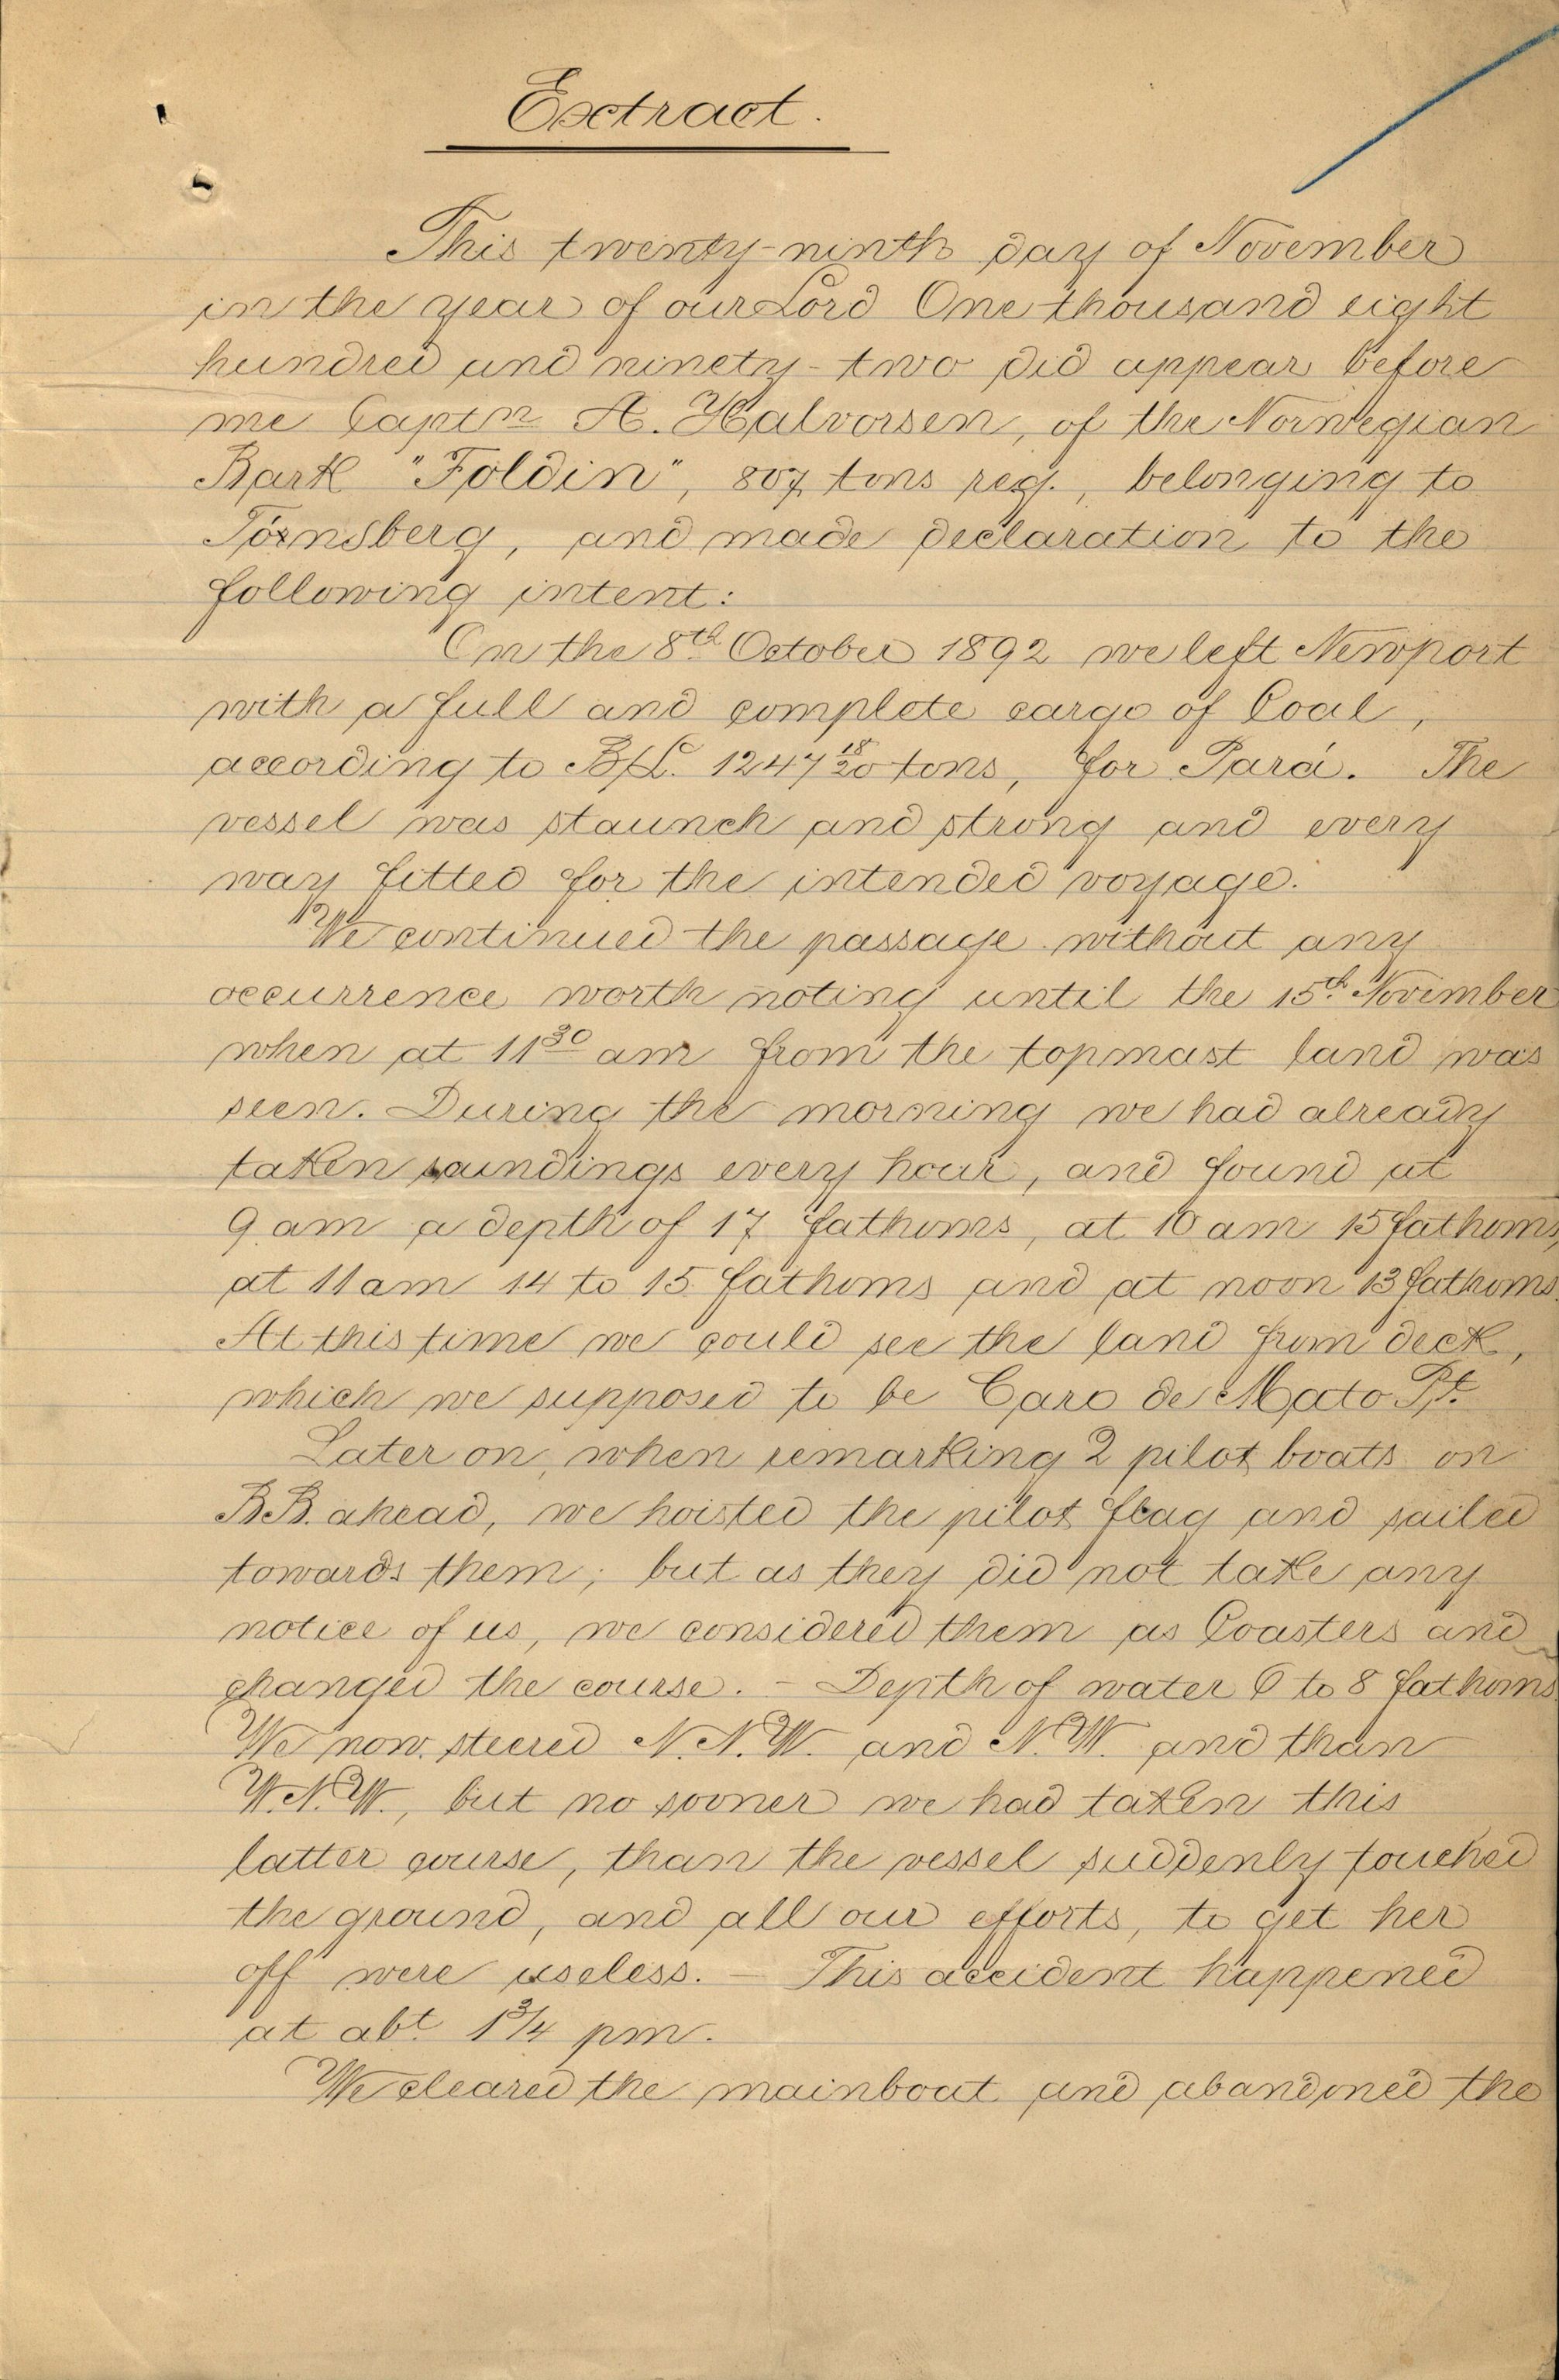 Exctract.
This twenty-ninth day of November
in the year of our Lord One thousand eight
hundred and ninety-two did appear before
me Captn A. Halvorsen, of the Norwegian
Bark "Foldin", 807 tons reg., belonging to
Törnsberg, and made declaration to the
following intent:
On the 8th October 1892 we left Newport
with a full and complete cargo of Coal,
according to B/L. 1247 18/20 tons, for Pará. The
vessel was staunch and strong and every
way fitted for the intended voyage.
We continued the passage without any
occurrence worth noting until the 15th November
when at 11 30 am from the topmast land was
seen. During the morning we had already
taken soundings every hour, and found at
9 am a depth of 17 fathoms, at 10 am 15 fathoms,
at 11 am 14 to 15 fathoms and at noon 13 fathoms.
At this time we could see the land from deck,
which we supposed to be Caro de Mato Pt.
Later on, when remarking 2 pilot boats on
B.B. ahead, we hoisted the pilot flag and sailed
towards them; but as they did not take any
notice of us, we considered them as Coasters and
changed the course. - Depth of water 6 to 8 fathoms.
We now steered N.N.W. and N.W. and than
W.N.W., but no sooner we had taken this
latter course, than the vessel suddenly touched
the ground, and all our efforts, to get her
off were useless. - This accident happened
at abt 1 3/4 pm.
We cleared the mainboat and abandoned the